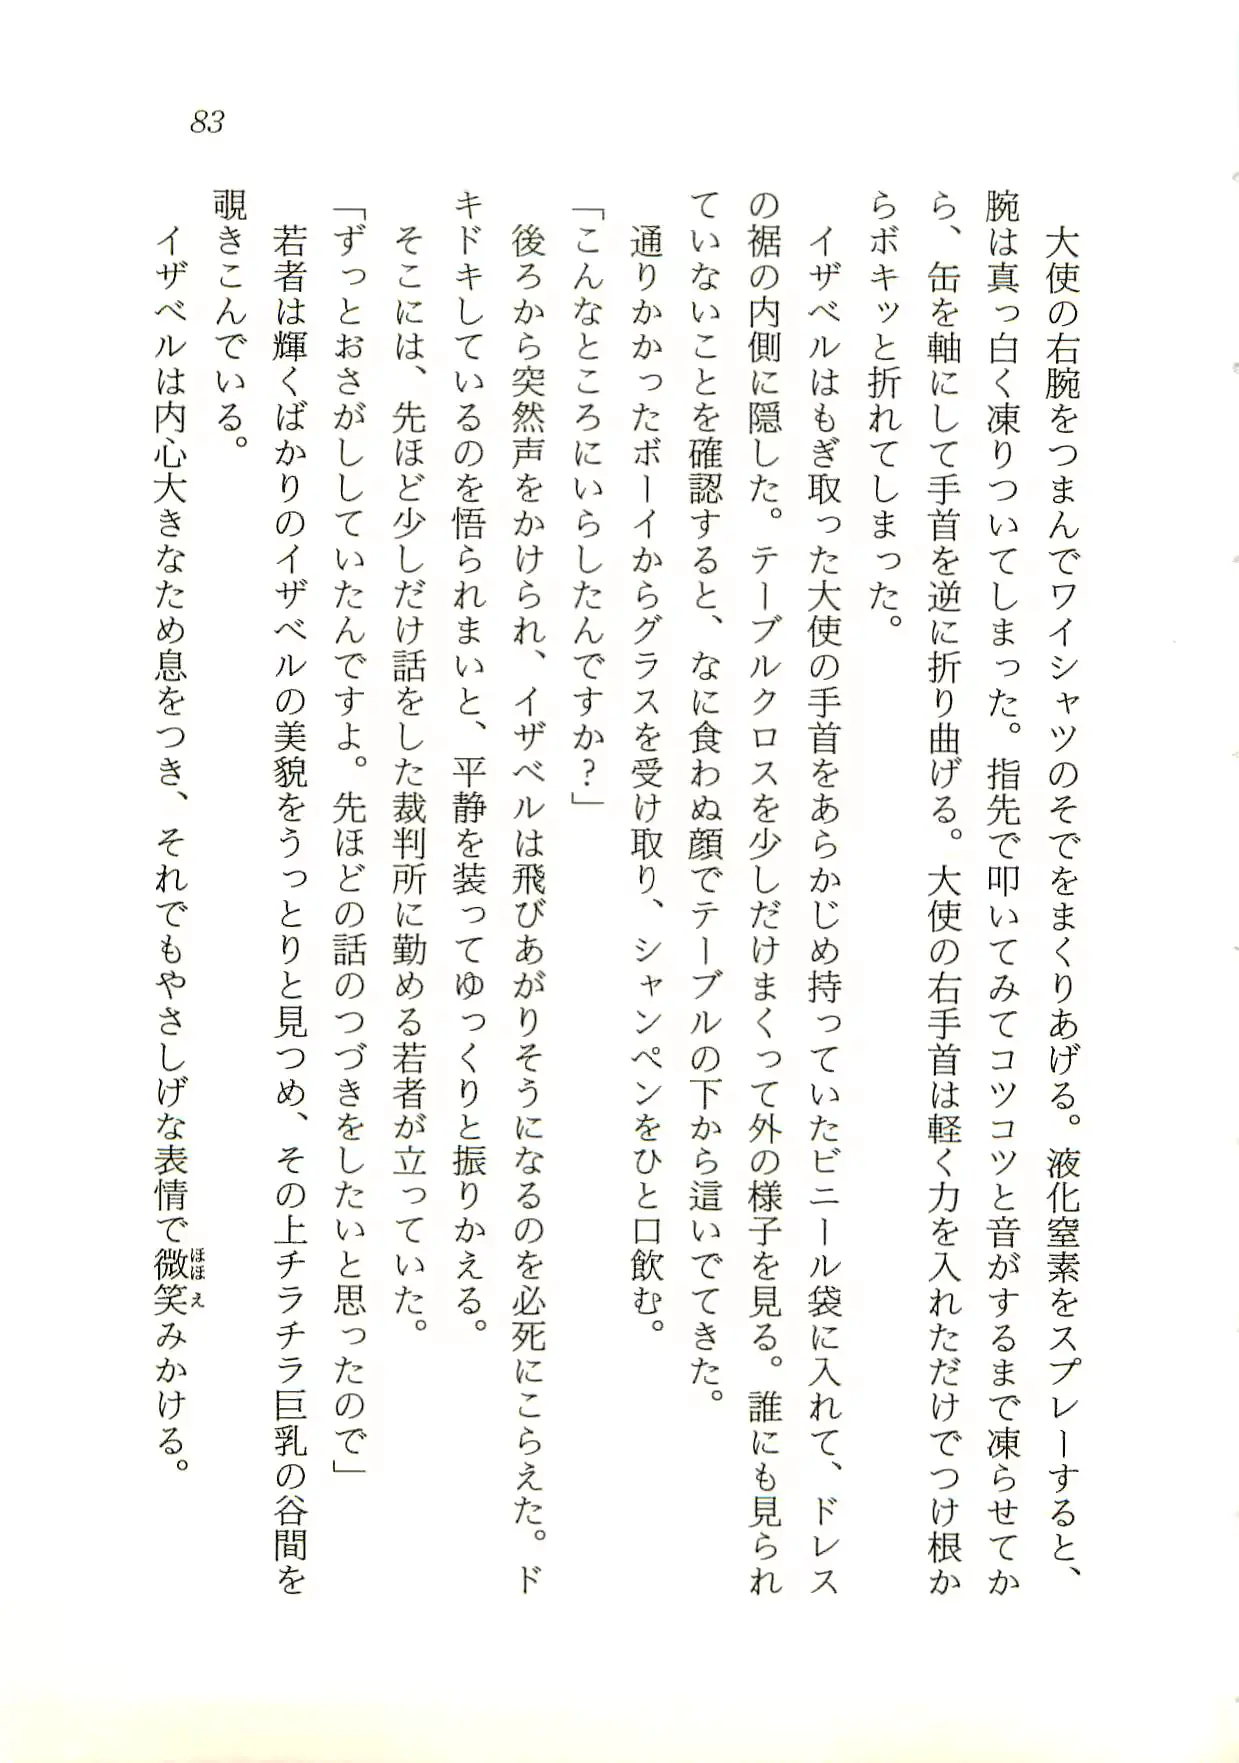 83
　大使の右腕をつまんでワイシャツのそでをまくりあげる。液化窒素をスプレーすると、
腕は真っ白く凍りついてしまった。指先で叩いてみてコツコツと音がするまで凍らせてか
ら、缶を軸にして手首を逆に折り曲げる。大使の右手首は軽く力を入れただけでつけ根か
らボキッと折れてしまった。
　イザベルはもぎ取った大使の手首をあらかじめ持っていたビニール袋に入れて、ドレス
の裾の内側に隠した。テーブルクロスを少しだけまくって外の様子を見る。誰にも見られ
ていないことを確認すると、なに食わぬ顔でテーブルの下から這いでてきた。
　通りかかったボーイからグラスを受け取り、シャンペンをひと口飲む。
「こんなところにいらしたんですか？」
　後ろから突然声をかけられ、イザベルは飛びあがりそうになるのを必死にこらえた。ド
キドキしているのを悟られまいと、平静を装ってゆっくりと振りかえる。
　そこには、先ほど少しだけ話をした裁判所に勤める若者が立っていた。
「ずっとおさがししていたんですよ。先ほどの話のつづきをしたいと思ったので」
　若者は輝くばかりのイザベルの美貌をうっとりと見つめ、その上チラチラ巨乳の谷間を
覗きこんでいる。
　イザベルは内心大きなため息をつき、それでもやさしげな表情で微笑みかける。
ほほえ